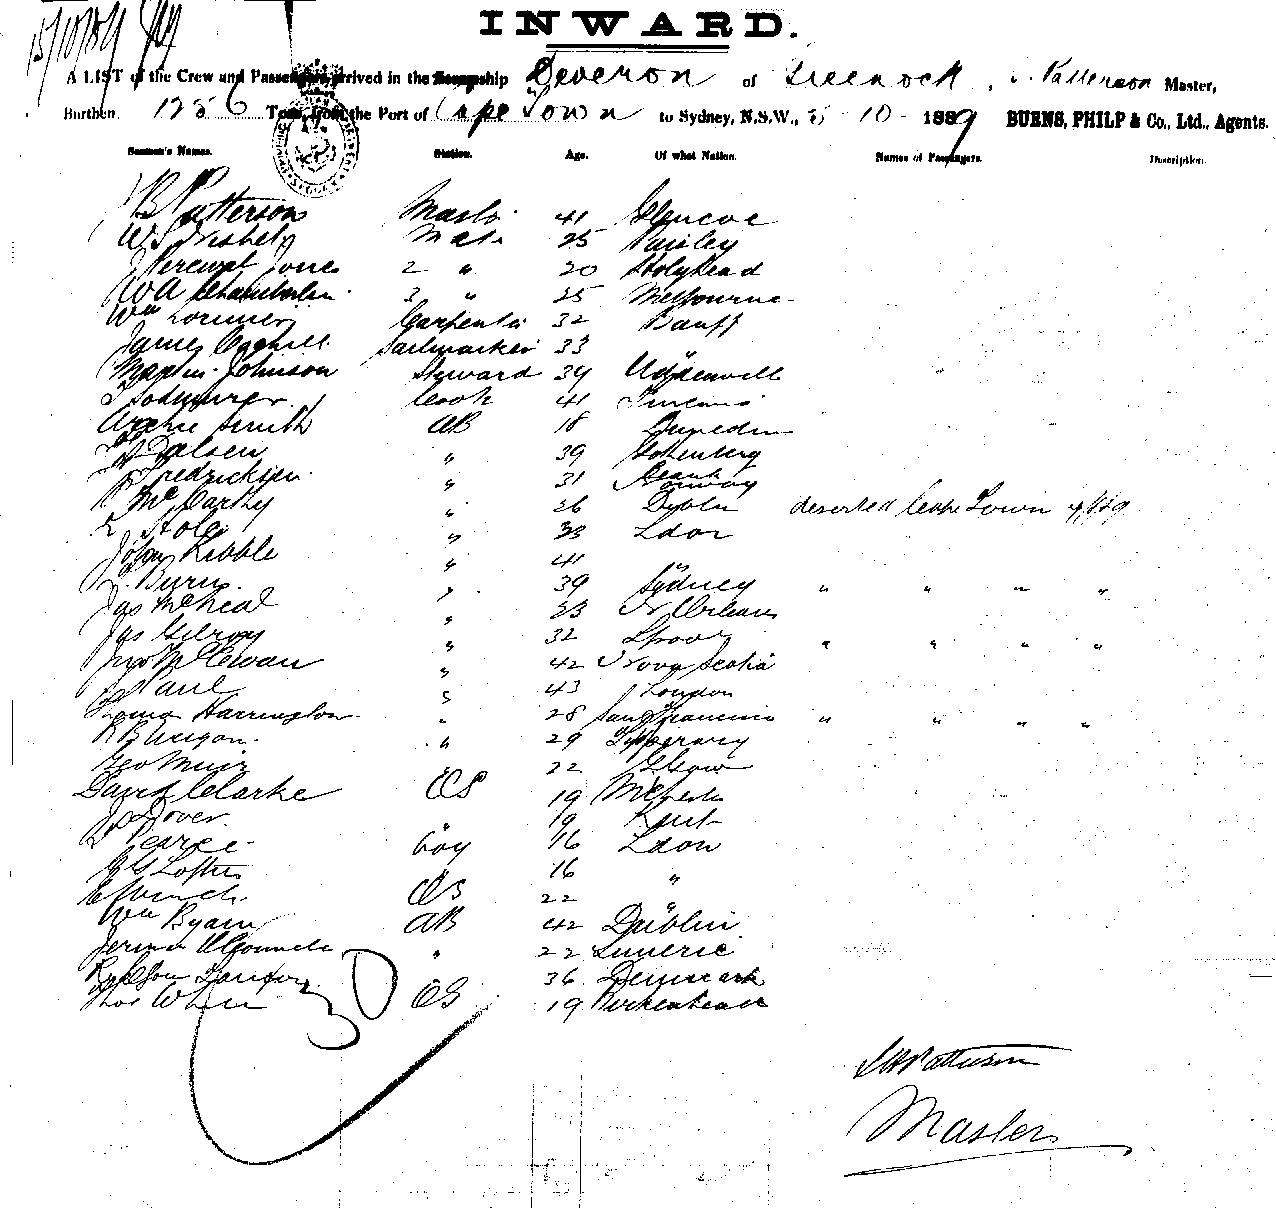 15/10/89
INWARD.
A LIST of the Crew and Passengers arrived in the ship Deveron of Greenock, Patterson Master,
Burthen 1256 Tons, from the Port of Cape Town to Sydney, N.S.W., 5 10 1889 BURNS, PHILP & Co., Ltd., Agents.
Seamen's Names. Station. Age. Of what Nation. Names of Passengers. Description.
B Patterson Master 41 Glencoe
WS Nisbet Mate 25 Paisley
J Percival Jones 2 " 20 Holyhead
WA Chamberlin 3 " 25 Melbourne
Wm Lorimer Carpenter 32 Banff
James Coghill Sailmaker 33
Martin Johnson Steward 34
Cook 41
Archie Smith AB 18 Dunedin
Dalsen " 39 Gothenberg
Fredricksen " 31 Norway
McCarthy " 26 Dublin deserted Cape Town
" 33 Ldon
John Kibble " 41
Burns " 39 Sydney " " " "
Jas McNeal " 23 N Orleans
Jas Gilroy " 32 Lpool " " " "
McEwan " 42 Nova Scotia
Paul " 43 London
Thomas Harrington " 28 San Francisco " " " "
RB " 29 Tipperary
Geo Muir 22 Glsgow
David Clarke OS 19
J Dover " 19 Kent
Pearce boy 16 Ldon
G Loftus " 16 "
OS 22 "
Wm Byam AB 42 Dublin
O'Connell " 22 Limeric
36 Denmark
Thos White OS 19 Birkenhead
30
Patterson
Master